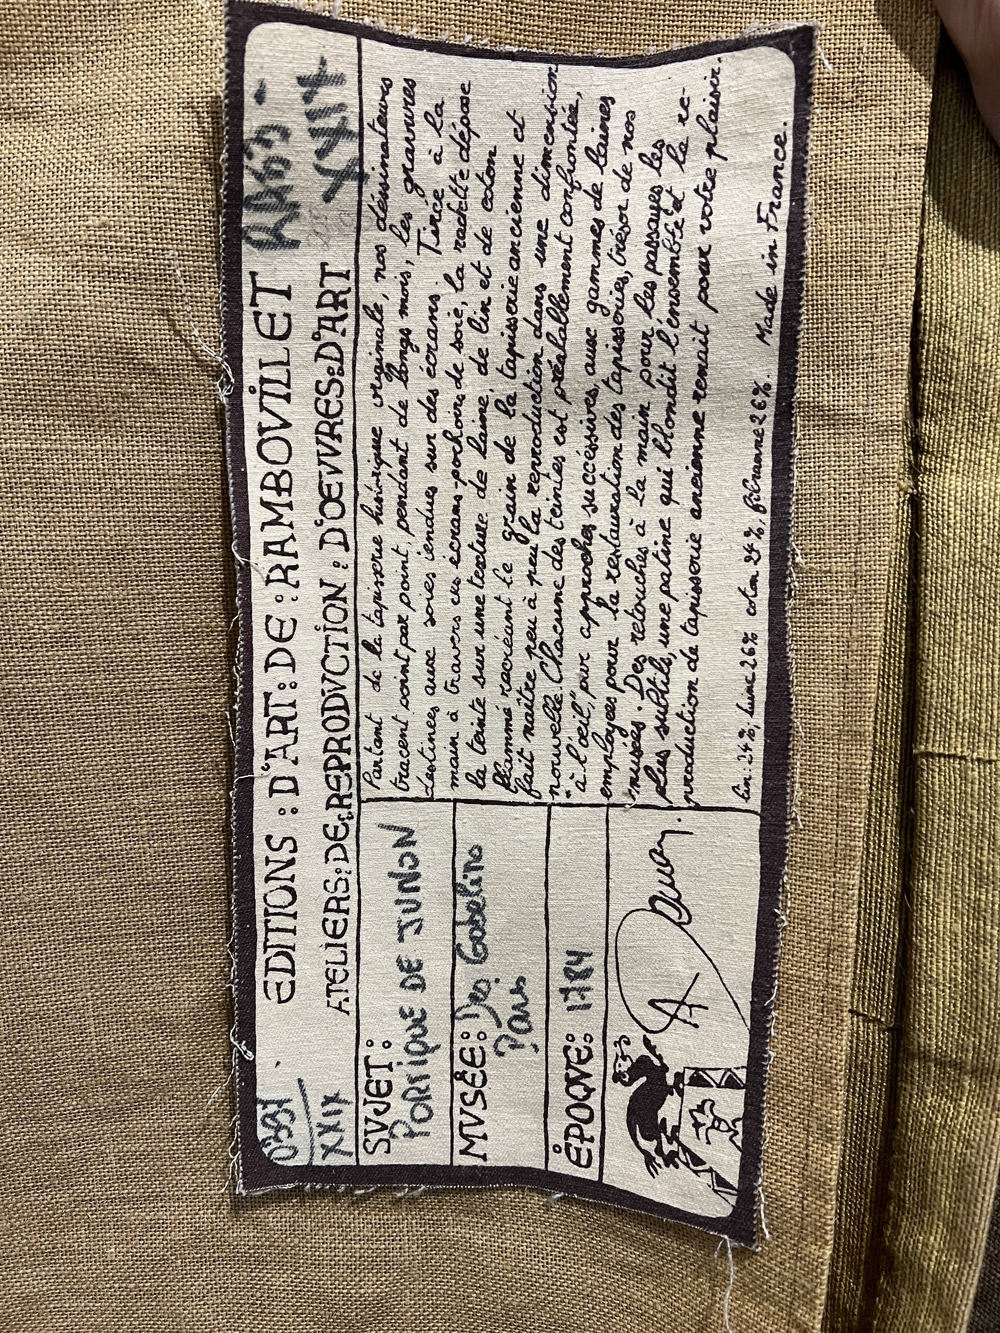 EDITIONS : D'ART : DE : RAMBOVILLET
ATELIERS : DE : REPRODVCTION : D'OEVVRES : D'ART
XXIX
XXIX
SVJET :
PORTIQUE DE JUNON
MVSÉE : Des Gobelins
Paris
ÉPOQVE : 1784
Partant de la tapisserie historique originale, nos dessinateurs
tracent point par point, pendant de longs mois, les gravures
destinées aux soies tendues sur des écrans. Tirée à la
main à travers ces écrans-pochoirs de soie, la raclette dépose
la teinte sur une texture de laine, de lin et de coton
flammé recréant le grain de la tapisserie ancienne et
fait naître peu à peu la reproduction dans une dimension
nouvelle. Chacune des teintes est préalablement confrontée,
"à l'oeil", par approches successives, aux gammes de laines
employées pour la restauration des tapisseries, trésor de nos
musées. Des retouches à la main pour les passages les
plus subtils, une patine qui blondit l'ensemble et la re-
production de tapisserie ancienne renait pour votre plaisir.
lin 24%, laine 26% coton 24%, fibranne 26%. Made in France.